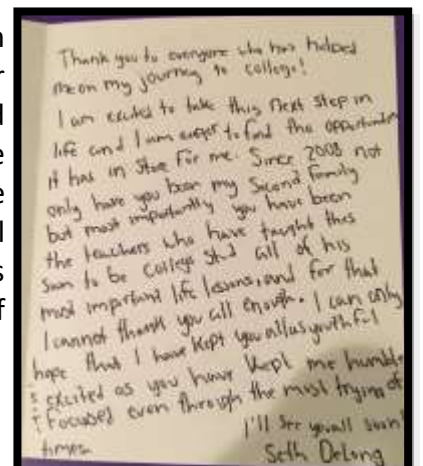 Thank you to everyone who has helped
me on my journey to college!
I am excited to take this next step in
life and I am eager to find the
it has in store for me. Since 2008 not
only have you been my Second family
but most importantly you have been
the teachers who have taught this
soon to be college stud all of his
most important life lessons, and for that
I cannot thank you all enough. I can only
hope that I have kept you all as youthful
excited as you have kept me humble
focused even through the most trying of
times.
I'll see you all soon!
Seth DeLong